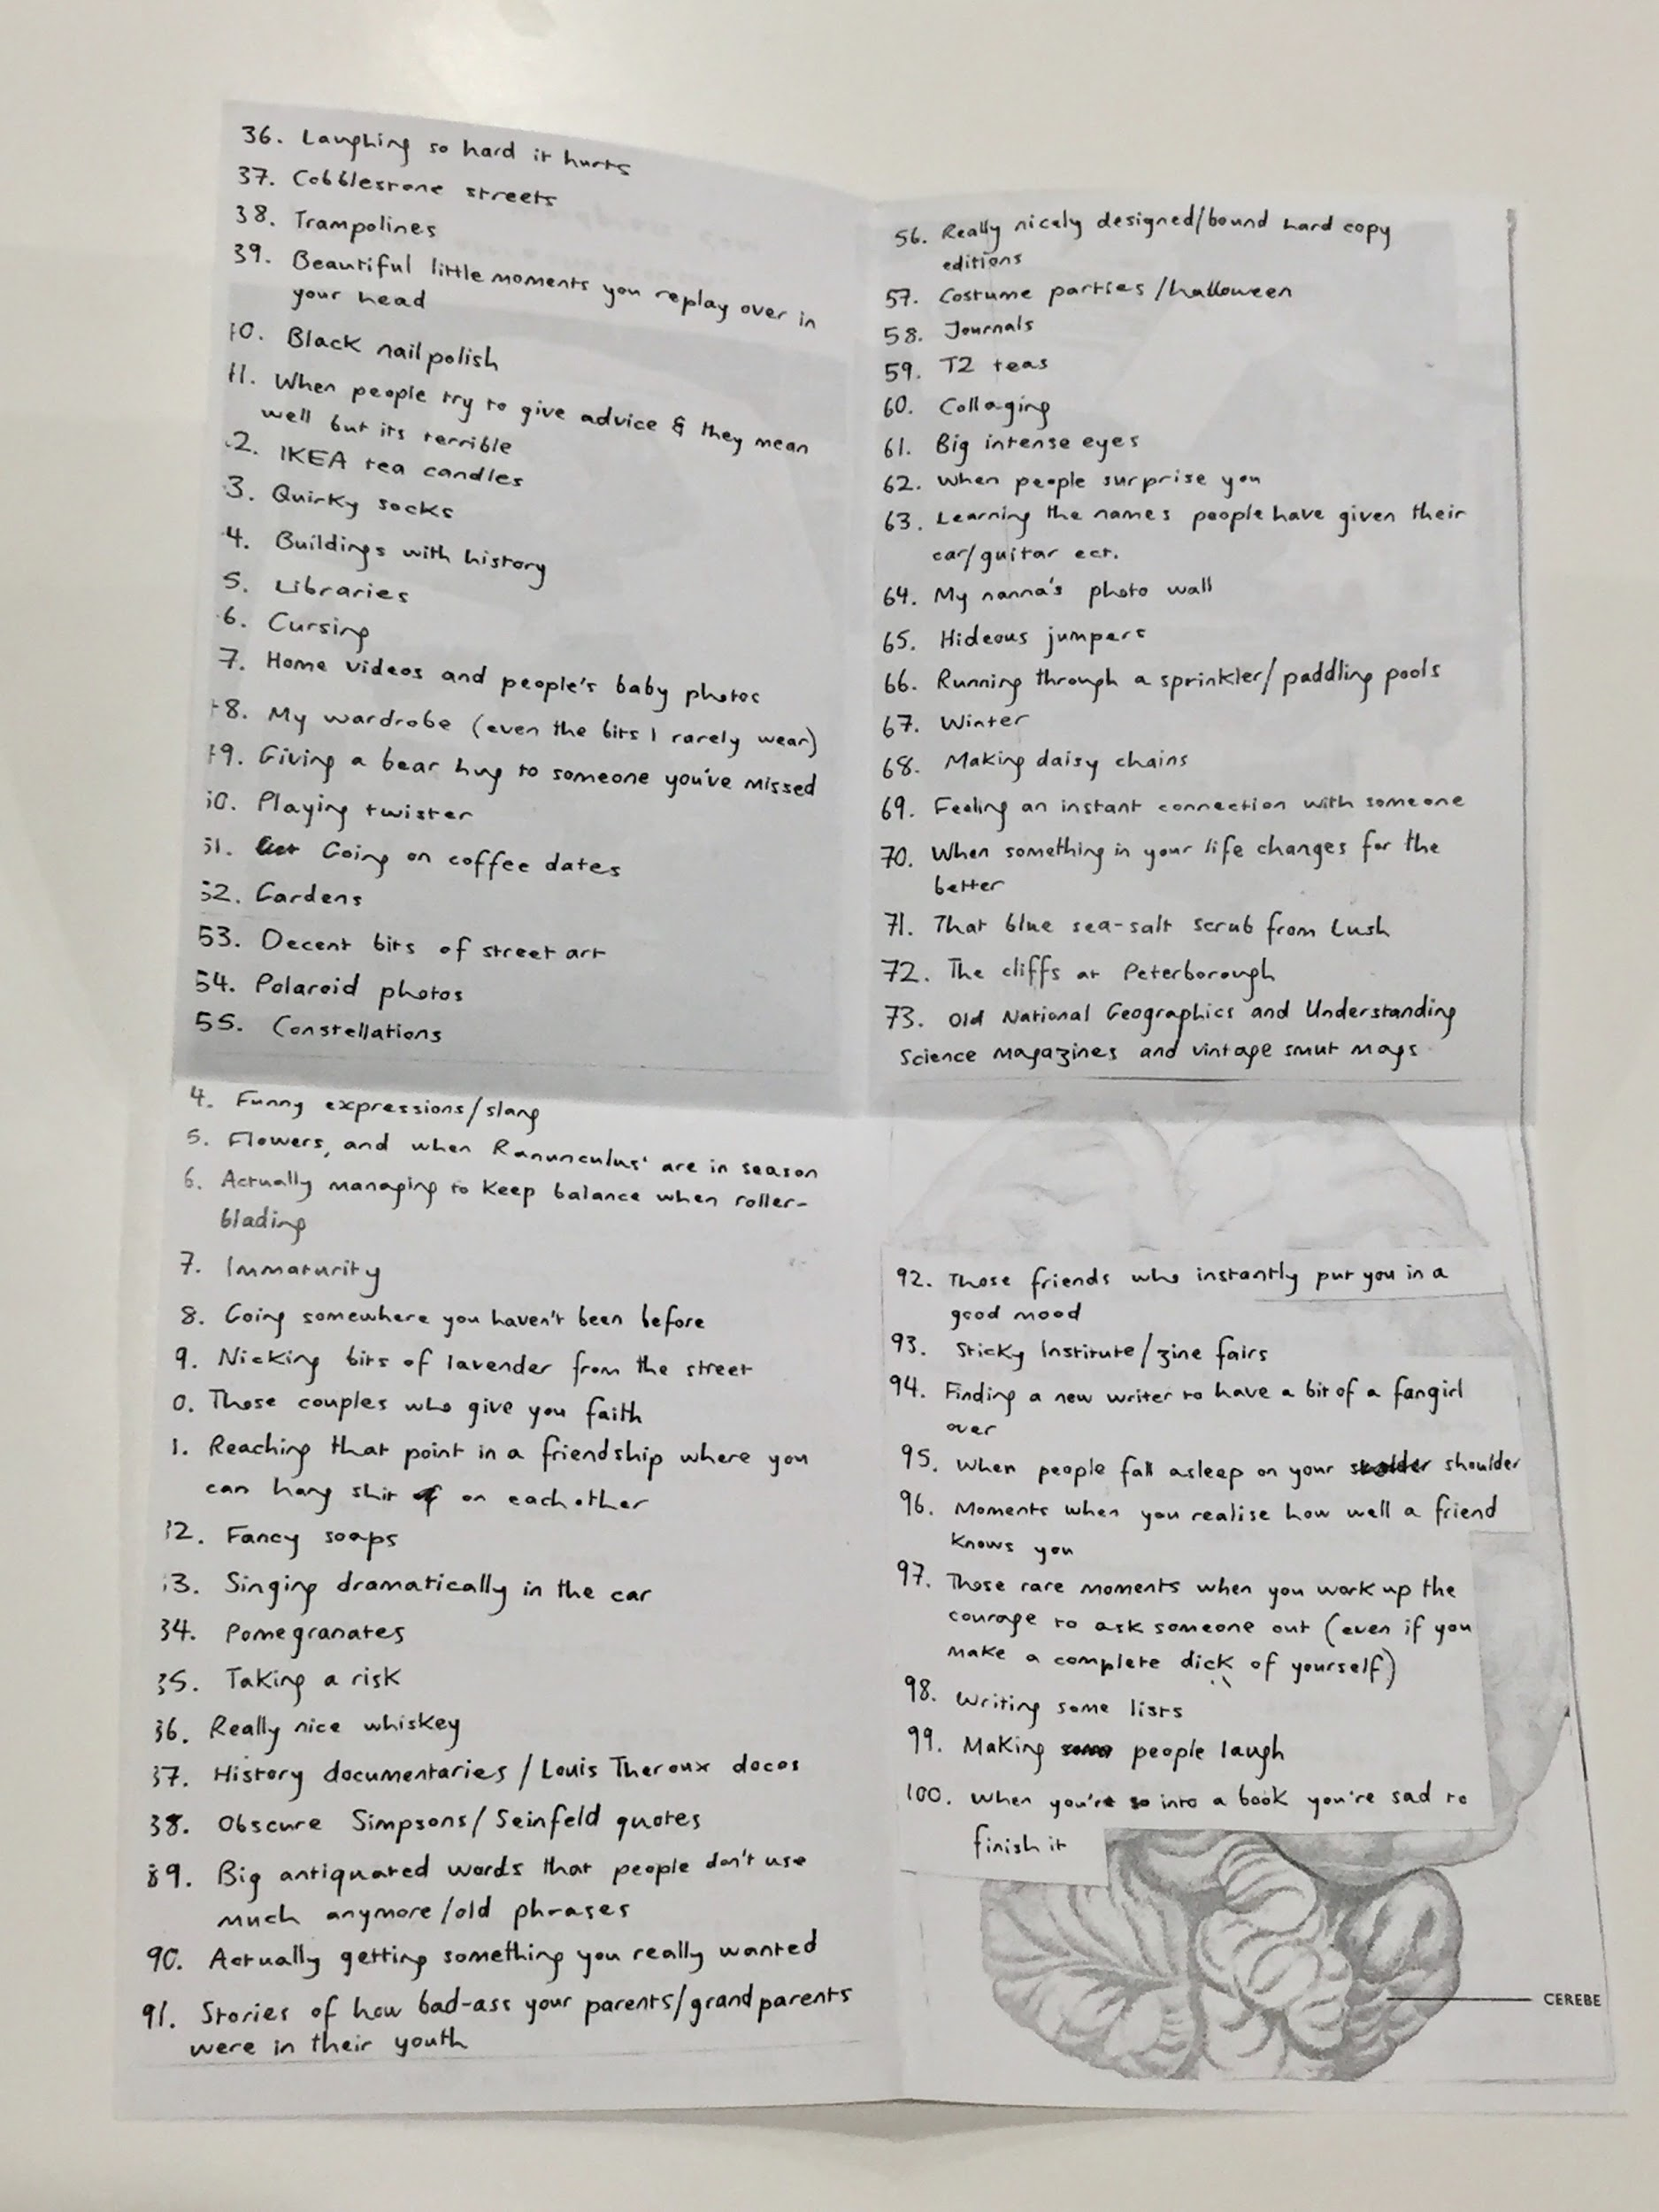 36. Laughing so hard it hurts
37. Cobblestone streets
38. Trampolines
39. Beautiful little moments you replay over in
your head
40. Black nail polish
41. When people try to give advice & they mean
well but its terrible
2. IKEA tea candles
3. Quirky socks
4. Buildings with history
5. Libraries
6. Cursing
7. Home videos and people's baby photos
48. My wardrobe (even the bits I rarely wear)
49. Giving a bear hug to someone you've missed
50. Playing twister
51. Going on coffee dates
52. Gardens
53. Decent bits of street art
54. Polaroid photos
55. Constellations
56. Really nicely designed/bound hard copy
editions
57. Costume parties/halloween
58. Journals
59. T2 teas
60. Collaging
61. Big intense eyes
62. When people surprise you
63. Learning the names people have given their
car/guitar ect.
64. My nanna's photo wall
65. Hideous jumpers
66. Running through a sprinkler/paddling pools
67. Winter
68. Making daisy chains
69. Feeling an instant connection with someone
70. When something in your life changes for the
better
71. That blue sea-salt scrub from Lush
72. The cliffs at Peterborough
73. Old National Geographics and Understanding
Science Magazines and vintage smut mags
4. Funny expressions/slang
5. Flowers, and when Ranunculus' are in season
6. Actually managing to keep balance when roller-
blading
7. Immaturity
8. Going somewhere you haven't been before
9. Nicking bits of lavender from the street
0. Those couples who give you faith
1. Reaching that point in a friendship where you
can hang shit on each other
82. Fancy soaps
83. Singing dramatically in the car
84. Pomegranates
85. Taking a risk
86. Really nice whiskey
87. History documentaries/Louis Theroux docos
88. Obscure Simpsons/Seinfeld quotes
89. Big antiquated words that people don't use
much anymore/old phrases
90. Actually getting something you really wanted
91. Stories of how bad-ass your parents/grandparents
were in their youth
92. Those friends who instantly put you in a
good mood
93. Sticky Institute/zine fairs
94. Finding a new writer to have a bit of a fangirl
over
95. When people fall asleep on your shoulder
96. Moments when you realise how well a friend
knows you
97. Those rare moments when you work up the
courage to ask someone out (even if you
make a complete dick of yourself)
98. Writing some lists
99. Making people laugh
100. When you're so into a book you're sad to
finish it
CEREBE